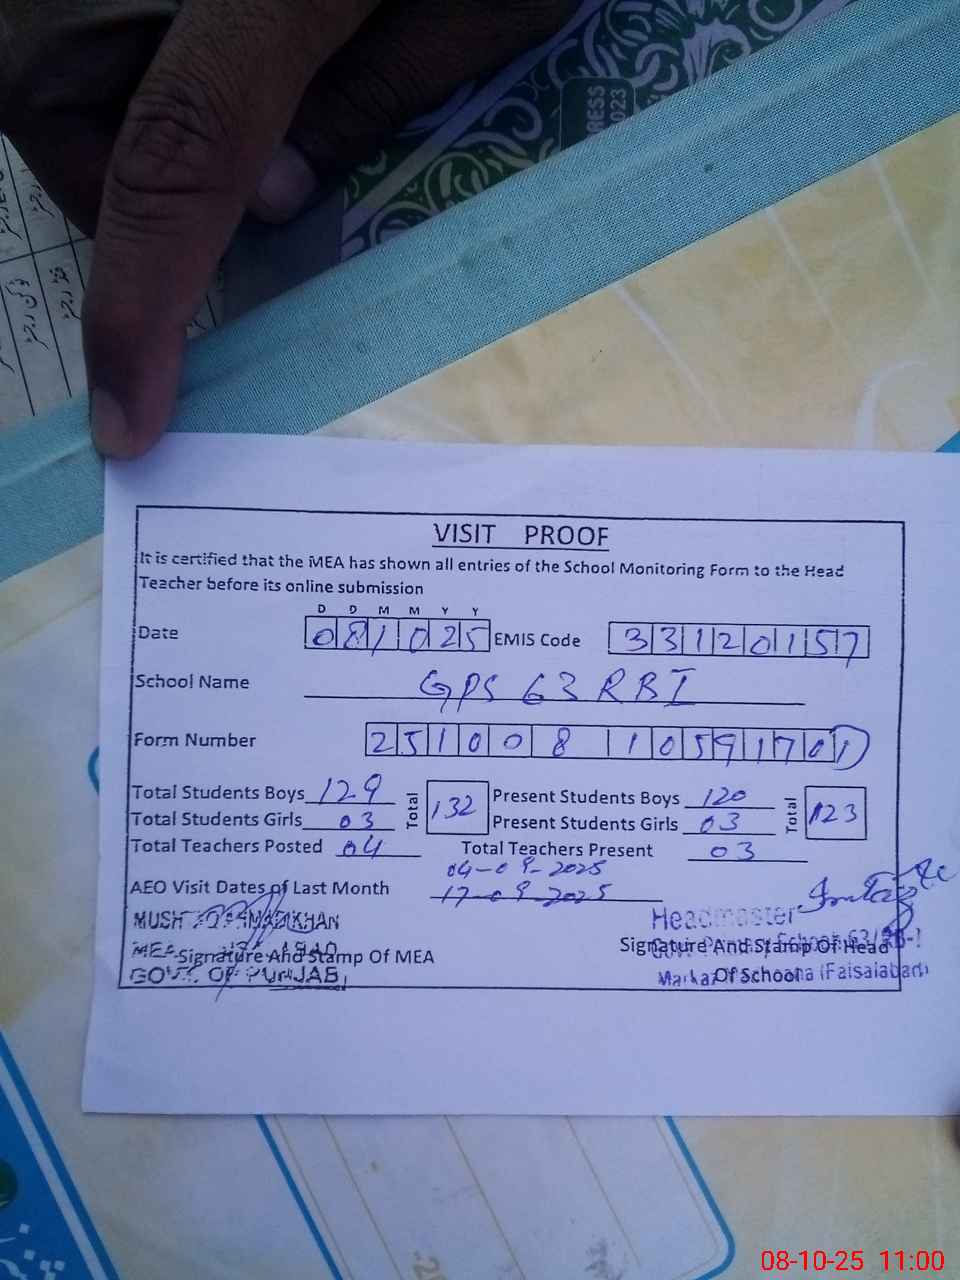 RESS
023
VISIT PROOF
It is certified that the MEA has shown all entries of the School Monitoring Form to the Head
Teacher before its online submission
D D M M Y Y
Date 081025 EMIS Code 33120157
School Name GPS 63 RBI
Form Number 251008 10591701
Total Students Boys 129 Total 132 Present Students Boys 120 Total 123
Total Students Girls 03 Present Students Girls 03
Total Teachers Posted 04 Total Teachers Present 03
04-09-2025
AEO Visit Dates of Last Month 17-09-2025
MUSHTAQ AHMAD KHAN Headmaster
MEA
Signature And Stamp Of MEA Signature And Stamp Of Head
GOVT. OF PUNJAB Of School (Faisalabad)
08-10-25 11:00